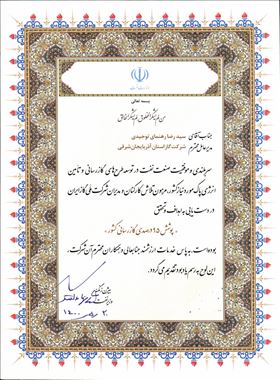 بسمه تعالی
من لم یشکر المخلوق لم یشکر الخالق
جناب آقای سید رضا رهنمای توحیدی
مدیرعامل محترم شرکت گاز استان آذربایجان شرقی
سربلندی و موفقیت صنعت نفت در توسعه طرح‌های گازرسانی و تامین
انرژی پاک مورد نیاز کشور، مرهون تلاش کارکنان و مدیران شرکت ملی گاز ایران
در دست یابی به اهداف و تحقق
«پوشش ۹۵ درصدی گازرسانی کشور»
بوده است. به پاس خدمات ارزشمند جنابعالی و همکاران محترم آن شرکت،
این لوح به رسم یادبود تقدیم می‌گردد.